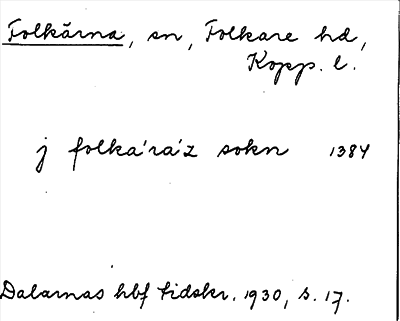 Folkärna, sn, Folkare hd,
Kopp. l.
j folka´ra´z sokn 1384
Dalarnas hbf tidskr. 1930, s. 17.